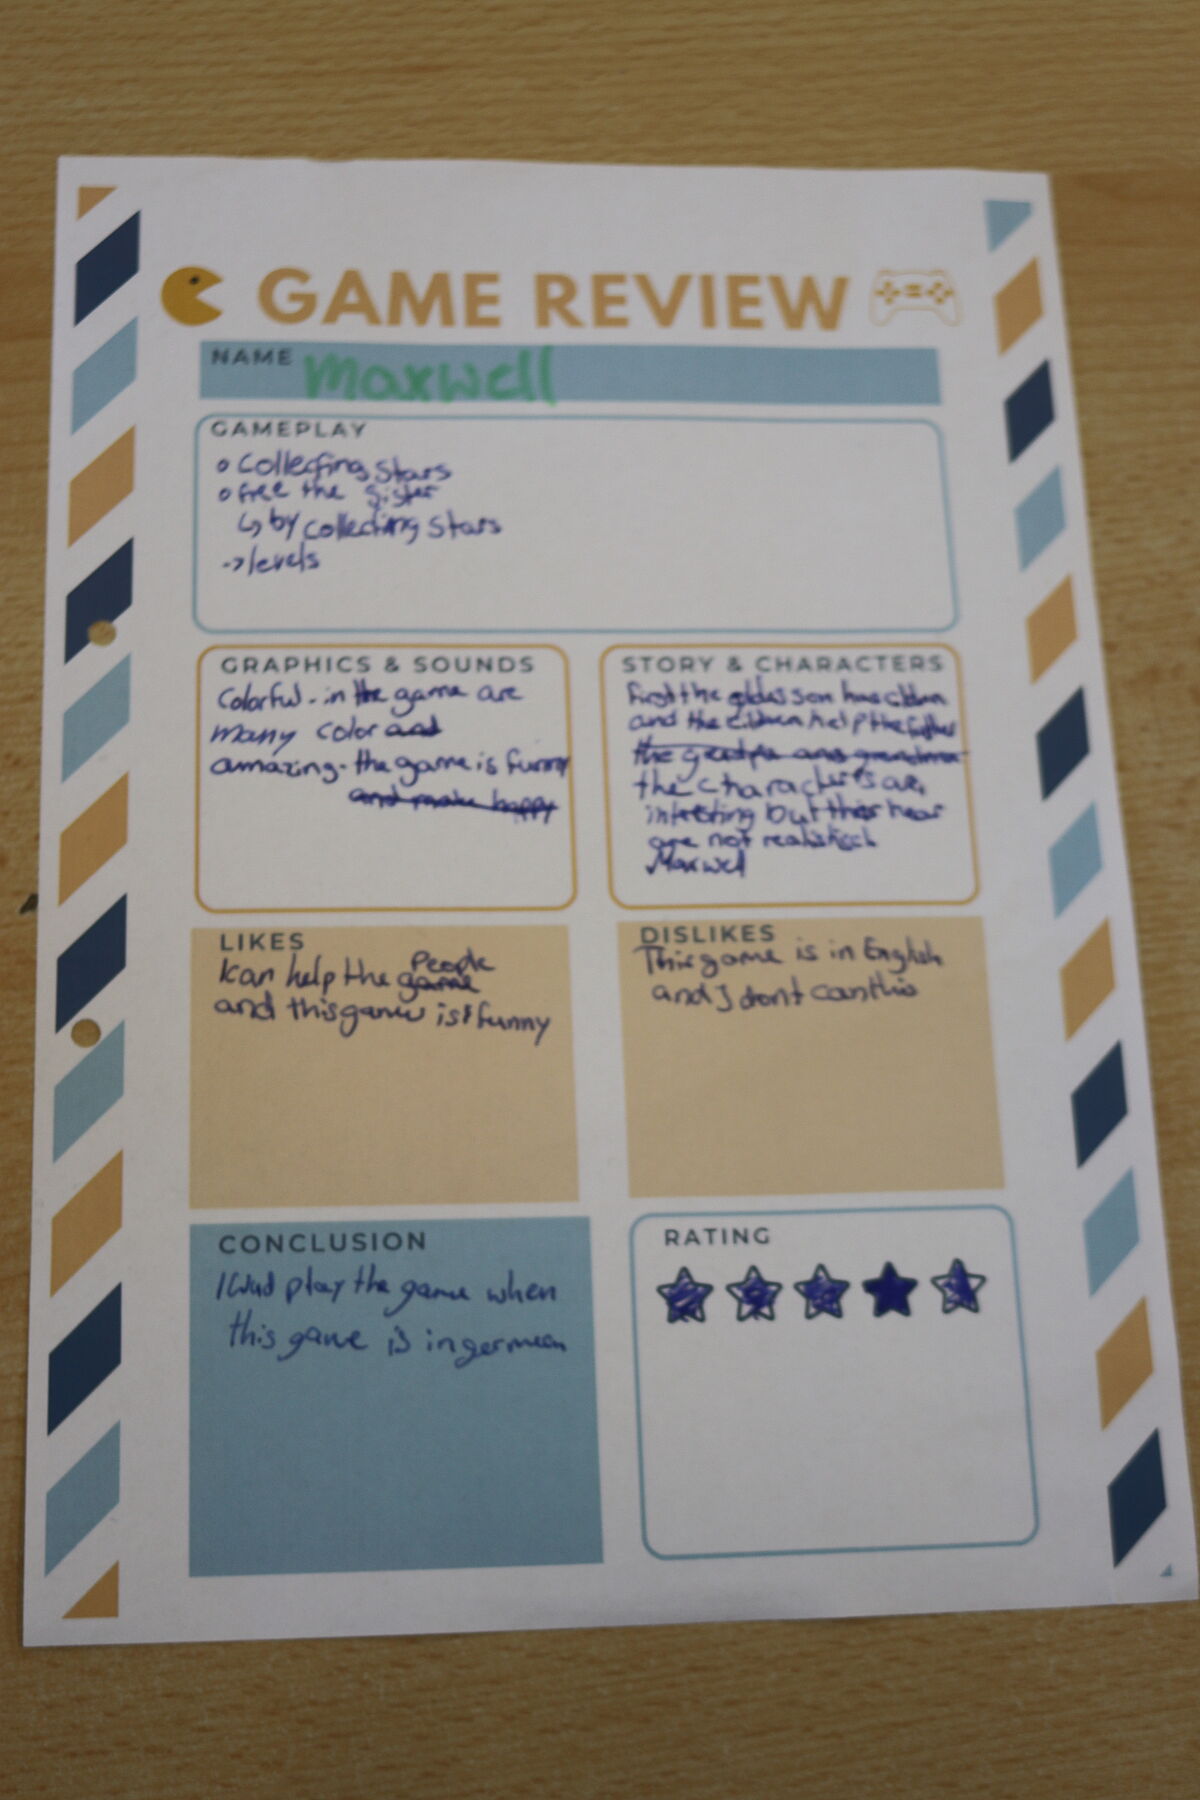 GAME REVIEW
NAME Maxwell
GAMEPLAY
o Collecting Stars
o free the Sister
↳ by collecting Stars
-> levels
GRAPHICS & SOUNDS
Colorful - in the game are
many color and
amazing - the game is funny
and make happy
STORY & CHARACTERS
First the son has
and the help the
the grandpa and grandma
the characters are
interesting but
are not
Maxwell
LIKES
People
I can help the game
and this game is funny
DISLIKES
This game is in English
and I dont can this
CONCLUSION
I Wud play the game when
this game is in germean
RATING